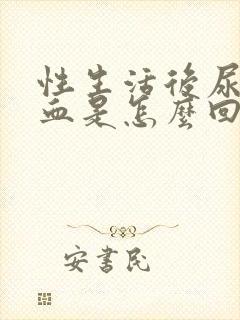 性生活後尿
血是怎麼回
安書民